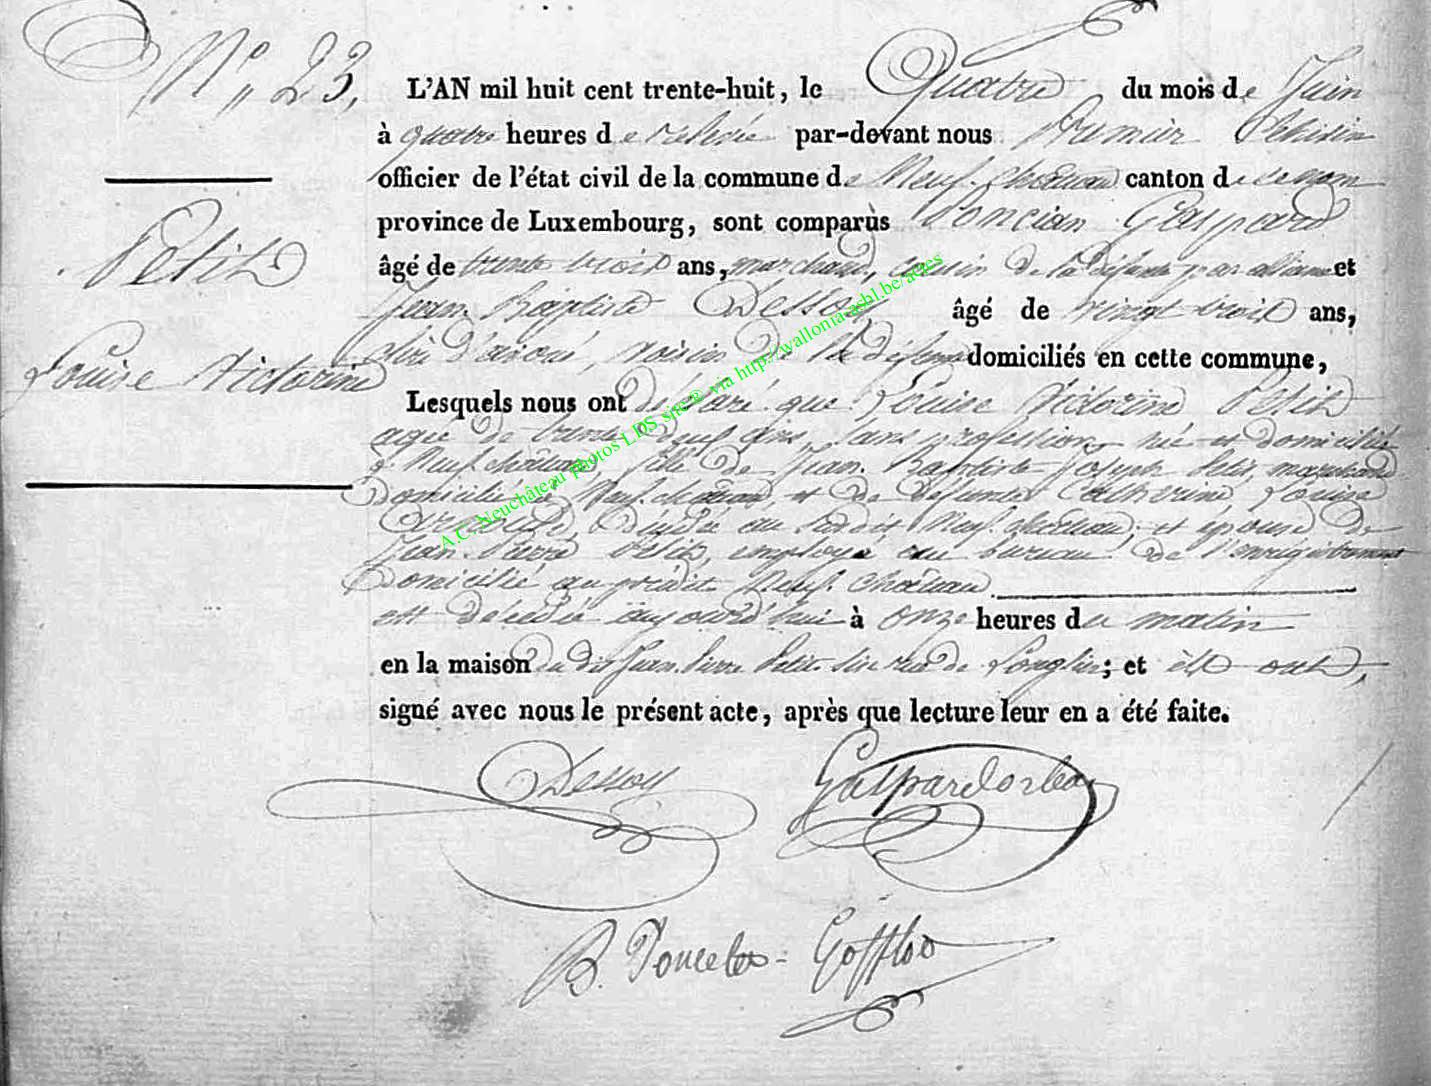 N° 23,
L'AN mil huit cent trente-huit, le Quatre du mois de Juin
à quatre heures de relevée par-devant nous Premier Echevin
officier de l'état civil de la commune de Neufchâteau canton de ce nom
province de Luxembourg, sont comparus Gaspard
âgé de trente trois ans, marchand, cousin de la défunte par alliance et
Jean Baptiste Dessoy âgé de vingt trois ans,
clerc d'avoué, voisin de la défunte domiciliés en cette commune,
Petit
Louise Victorine
Lesquels nous ont déclaré que Louise Victorine Petit
agée de trente ans, sans profession, née et domiciliée
à Neufchâteau fille de Jean Baptiste Joseph Petit marchand
domicilié à Neufchâteau et de défunte Catherine Louise
décédée au Neufchâteau, et épouse de
Jean Pierre Petit, employé au bureau de l'enregistrement
domicilié au prédit Neufchâteau
est décédée aujourd'hui à onze heures du matin
en la maison du dit Jean Pierre Petit sise rue de Longlier; et ont,
signé avec nous le présent acte, après que lecture leur en a été faite.
Dessoy
B. Poncelet - Goffloo
A.C. Neuchâteau photos LDS site® via http://wallonia-asbl.be/actes